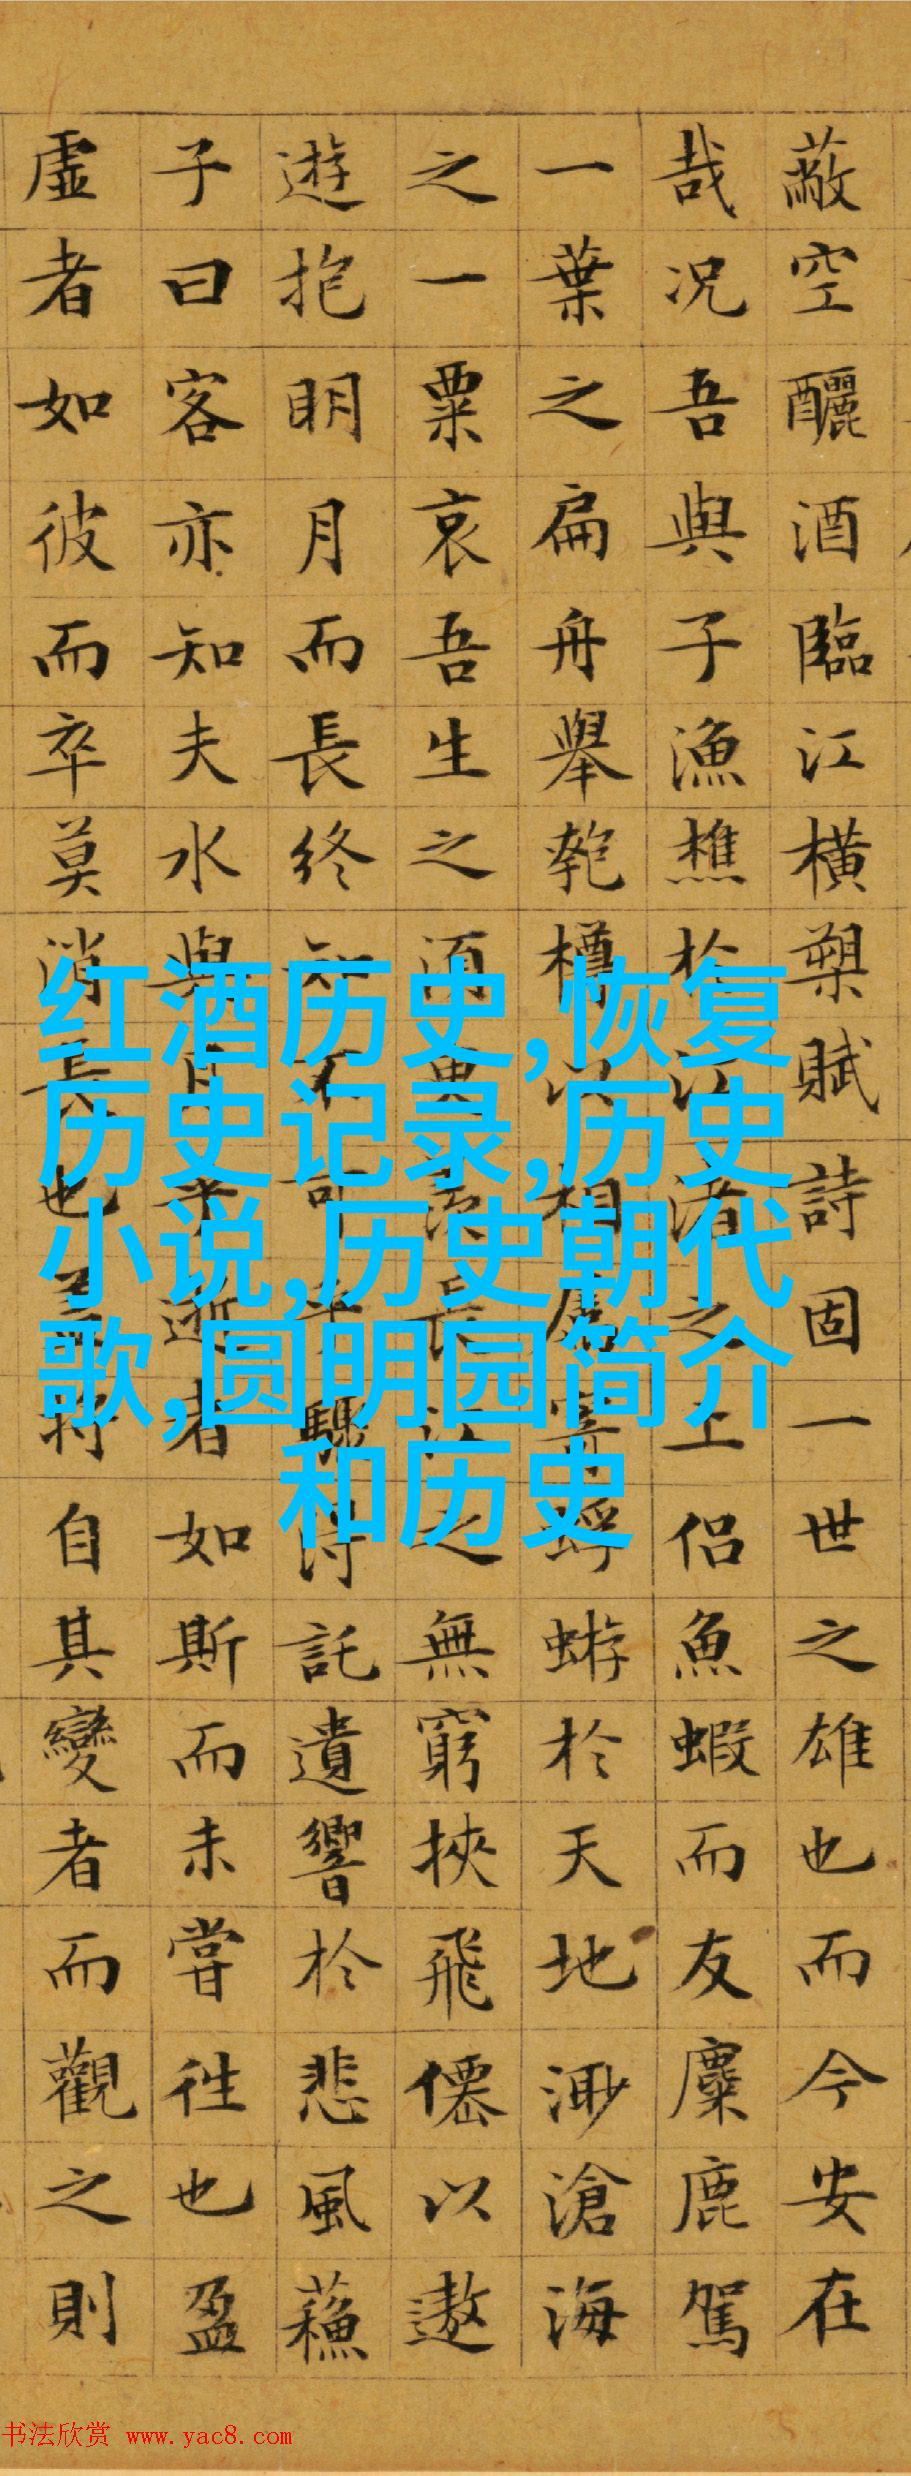 蔽空釃酒臨江橫槊賦詩固一世之雄也而今安在
哉况吾與子漁樵於江渚之上侶魚蝦而友麋鹿駕
一葉之扁舟舉匏樽以相屬寄蜉蝣於天地渺滄海
之一粟哀吾生之須臾羨長江之無窮挾飛僊以遨
遊抱明月而長終知不可乎驟得託遺響於悲風蘓
子曰客亦知夫水與月乎逝者如斯而未嘗往也盈
虛者如彼而卒莫消長也盖將自其變者而觀之則
红酒历史,恢复
历史记录,历史
小说,历史朝代
歌,圆明园简介
和历史
书法欣赏 www.yac8.com